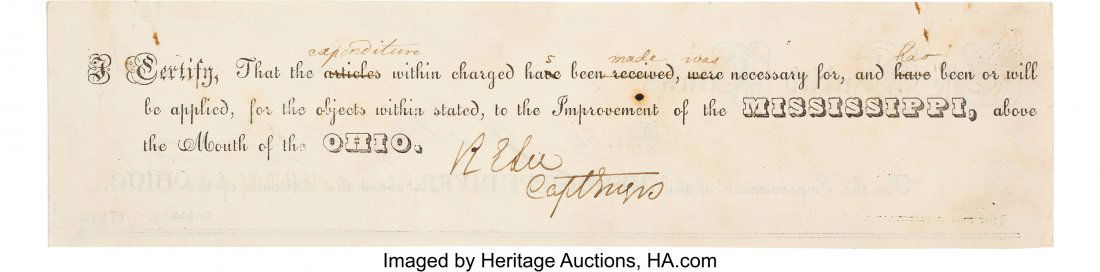 expenditure s made was has
I Certify, That the articles within charged have been received, were necessary for, and have been or will
be applied, for the objects within stated, to the Improvement of the MISSISSIPPI, above
the Mouth of the OHIO.
R E Lee
Capt Engrs
Imaged by Heritage Auctions, HA.com